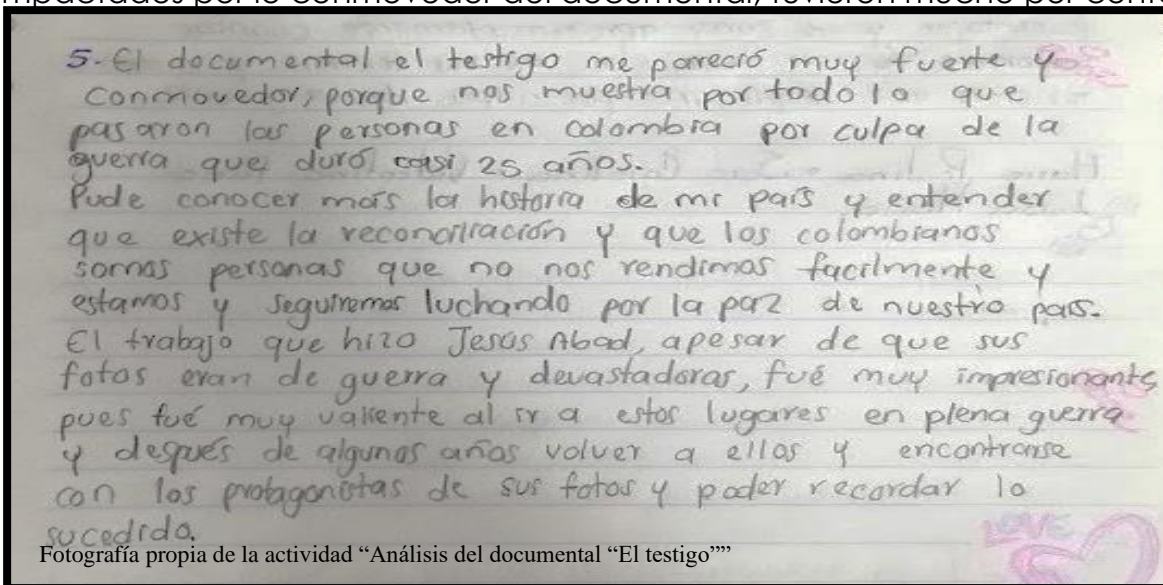 5. El documental el testigo me pareció muy fuerte y
conmovedor, porque nos muestra por todo lo que
pasaron las personas en Colombia por culpa de la
guerra que duró casi 25 años.
Pude conocer más la historia de mi país y entender
que existe la reconciliación y que los colombianos
somos personas que no nos rendimos facilmente y
estamos y seguiremos luchando por la paz de nuestro país.
El trabajo que hizo Jesús Abad, apesar de que sus
fotos eran de guerra y devastadoras, fué muy impresionante,
pues fué muy valiente al ir a estos lugares en plena guerra
y después de algunos años volver a ellos y encontrarse
con los protagonistas de sus fotos y poder recordar lo
sucedido.
Fotografía propia de la actividad “Análisis del documental “El testigo””
LOVE